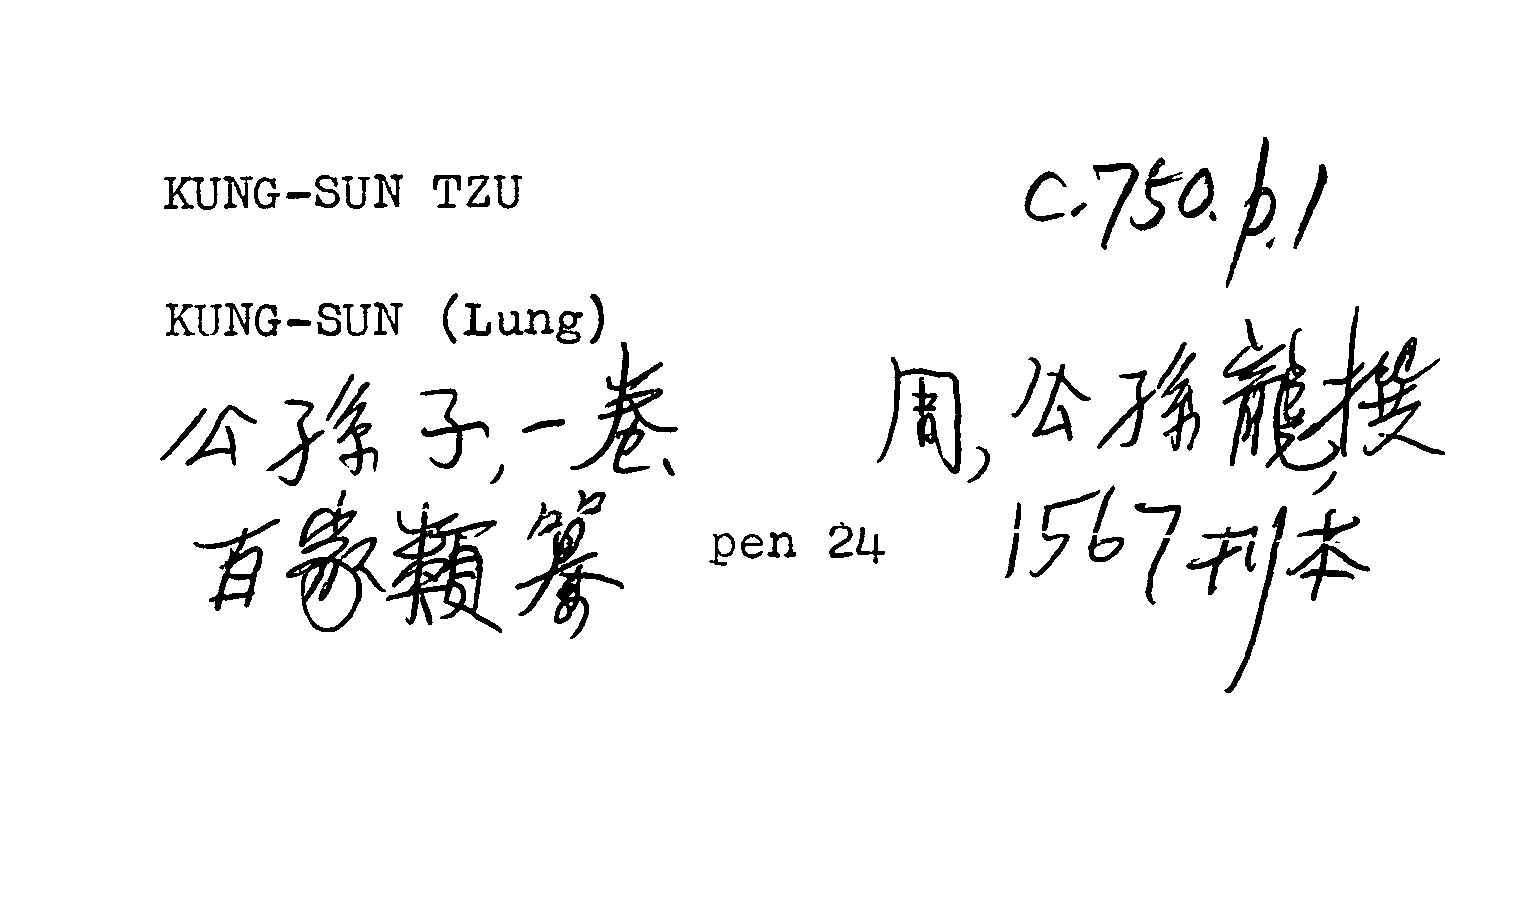 KUNG-SUN TZU C.750.b.1
KUNG-SUN (Lung)
公孫子,一卷、 周,公孫龍,撰,
百家類纂 pen 24 1567刊本